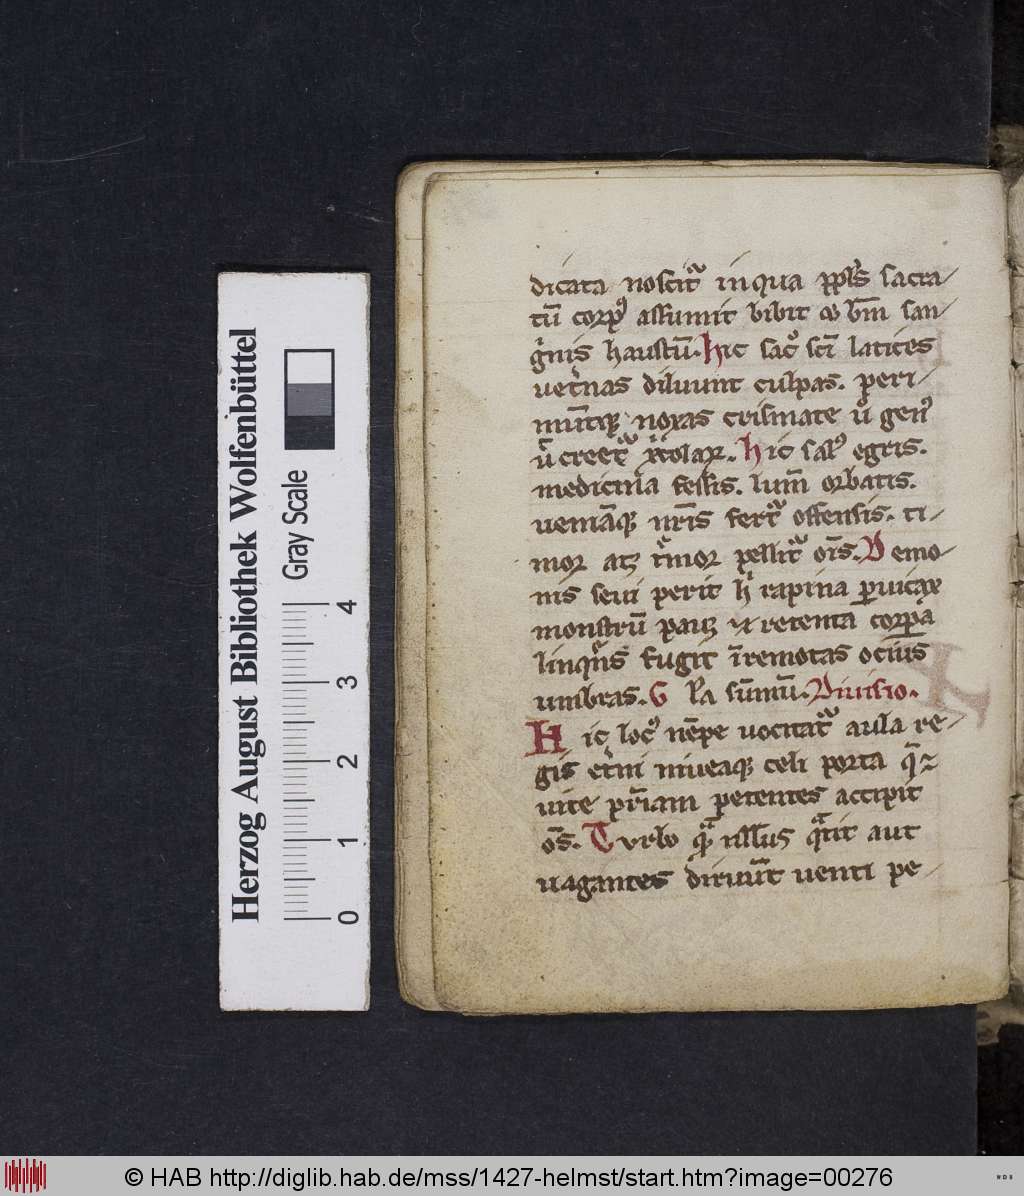 dicata noscit᷑ in qua ppl̄s sacra⸗
tū corpꝰ assumit bibit ⁊ bm̄ san⸗
gͥnis haustū. Hic sacͦ scī latices
vet͛nas diluunt culpas. peri⸗
mūtqꝫ noxas crismate
xp̄icolaꝝ. Hic salꝰ egris.
medicina fessis. lum̄ orbatis.
veniāqꝫ nr̄is fert᷑ offensis. ti⸗
mor atqꝫ t͛mor pellit᷑ oīs. Demo⸗
nis seui perit hͨ rapina ꝑuicax
monstrū pauꝫ ⁊ retenta corꝑa
linquēs fugit ī remotas ocius
umbras. Diuisio.
Hic locꝰ nēpe vocitat᷑ aula re⸗
gis et͛ni niueaqꝫ celi porta q̄
vite pr̄iam petentes accipit
oēs. Turbo nullus qͣtit aut
uagantes diruūt venti pe⸗
Herzog August Bibliothek Wolfenbüttel
Gray Scale
0 1 2 3 4
© HAB http://diglib.hab.de/mss/1427-helmst/start.htm?image=00276